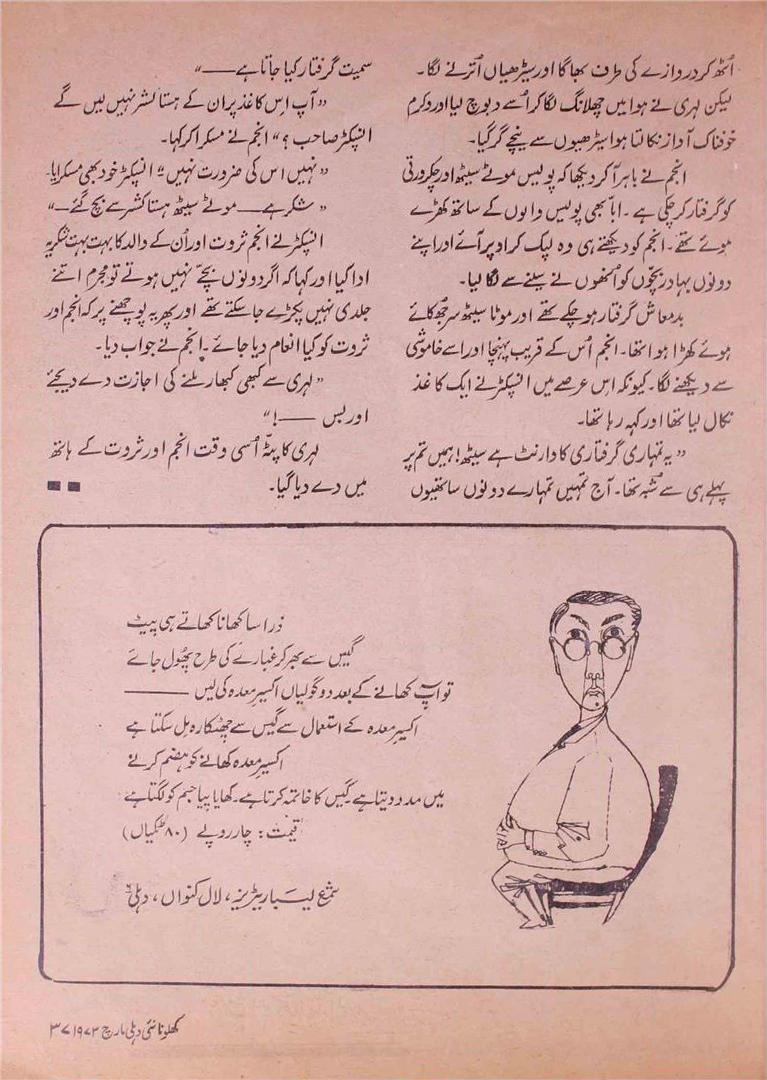 اُٹھ کر دروازے کی طرف بھاگا اور سیڑھیاں اُترنے لگا۔
لیکن لہری نے ہوا میں چھلانگ لگا کر اُسے دبوچ لیا اور وکرم
خوفناک آواز نکالتا ہوا سیڑھیوں سے نیچے گر گیا۔
انجم نے باہر آکر دیکھا کہ پولیس موٹے سیٹھ اور چکرورتی
کو گرفتار کر چکی ہے۔ ابّا بھی پولیس والوں کے ساتھ کھڑے
ہوئے تھے۔ انجم کو دیکھتے ہی وہ لپک کر اوپر آئے اور اپنے
دونوں بہادر بچّوں کو اُنھوں نے سینے سے لگا لیا۔
بدمعاش گرفتار ہو چکے تھے اور موٹا سیٹھ سر جھکائے
ہوئے کھڑا ہوا تھا۔ انجم اُس کے قریب پہنچا اور اسے خاموشی
سے دیکھنے لگا۔ کیونکہ اس عرصے میں انسپکٹر نے ایک کاغذ
نکال لیا تھا اور کہہ رہا تھا۔
”یہ تمہاری گرفتاری کا وارنٹ ہے سیٹھ! ہمیں تم پر
پہلے ہی سے شُبہ تھا۔ آج تمہیں تمہارے دونوں ساتھیوں
سمیت گرفتار کیا جاتا ہے ——“
”آپ اِس کاغذ پر ان کے ہستاکشر نہیں لیں گے
انسپکٹر صاحب؟“ انجم نے مسکرا کر کہا۔
”نہیں اس کی ضرورت نہیں“ انسپکٹر خود بھی مسکرایا۔
”شکر ہے —— موٹے سیٹھ ہستاکشر سے بچ گئے —“
انسپکٹر نے انجم ثروت اور اُن کے والد کا بہت بہت شکریہ
ادا کیا اور کہا کہ اگر دونوں بچّے نہیں ہوتے تو مجرم اتنے
جلدی نہیں پکڑے جا سکتے تھے اور پھر یہ پوچھنے پر کہ انجم اور
ثروت کو کیا انعام دیا جائے۔ انجم نے جواب دیا۔
”لہری سے کبھی کبھار ملنے کی اجازت دے دیجئے
اور بس ——!“
لہری کا پٹّہ اُسی وقت انجم اور ثروت کے ہاتھ
میں دے دیا گیا۔
ذرا سا کھانا کھاتے ہی پیٹ
گیس سے بھر کر غبارے کی طرح پھُول جائے
تو آپ کھانے کے بعد دو گولیاں اکسیر معدہ کی لیں ———
اکسیر معدہ کے استعمال سے گیس سے چھٹکارہ مل سکتا ہے
اکسیر معدہ کھانے کو ہضم کرنے
میں مدد دیتا ہے۔ گیس کا خاتمہ کرتا ہے۔ کھایا پیا جسم کو لگتا ہے
قیمت: چار روپے (۸۰ ٹکیاں)
شمع لیباریٹریز، لال کنواں، دہلی ۶
کھلونا نئی دہلی مارچ ۱۹۷۲ ۳۷